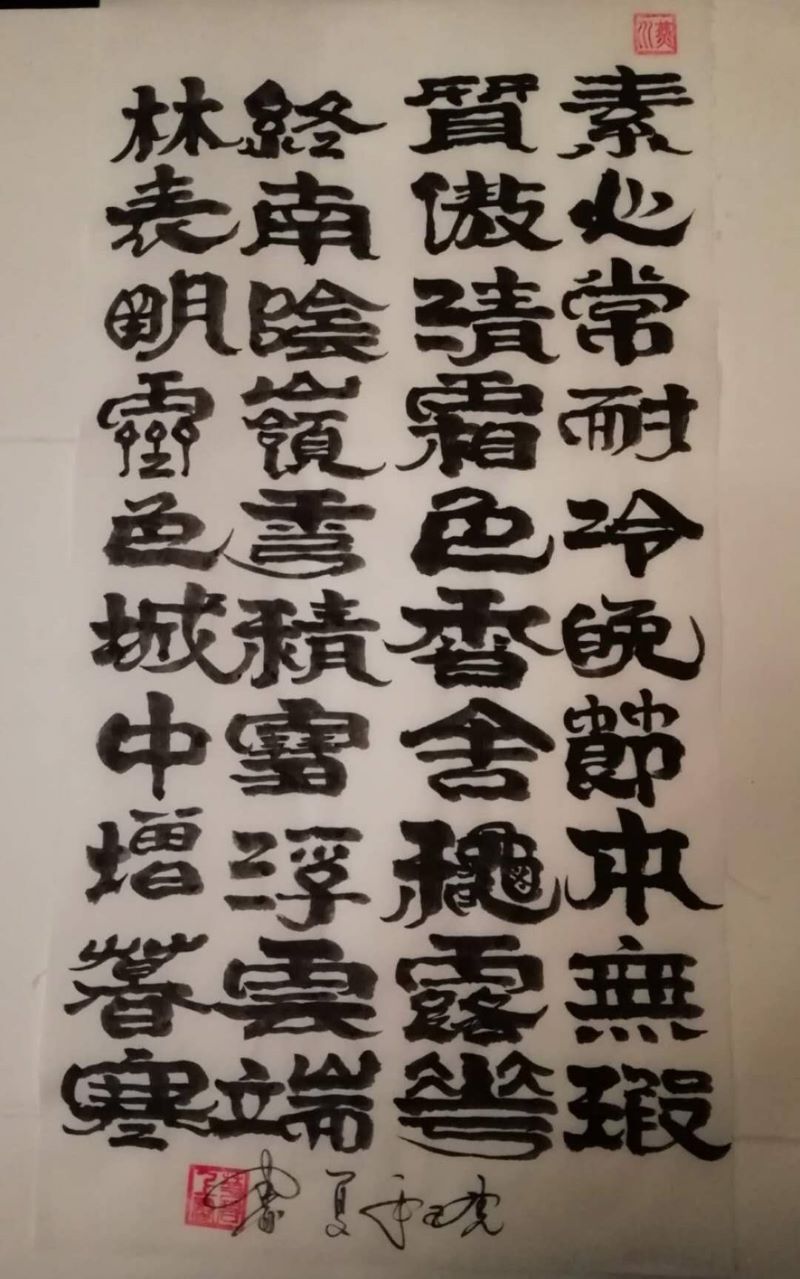 素心常耐冷晚節本無瑕
質傲清霜色香含龝露華
終南陰嶺秀積雪浮雲端
林表明霽色城中增暮寒
夏書